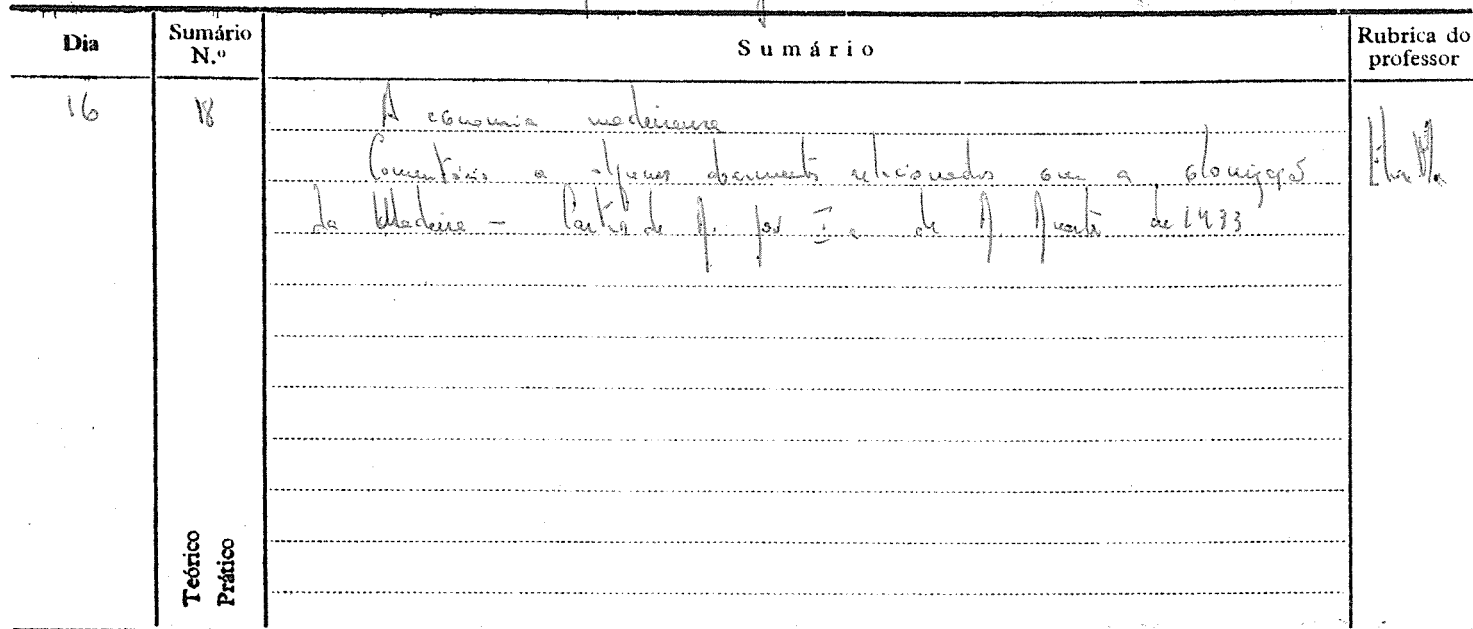 Dia
Sumário N.º
Sumário
Rubrica do professor
16
18
A economia madeirense
Comentários a alguns documentos relacionados com a colonização
da Madeira - Carta de D. João I e de D. Duarte de 1433
Teórico
Prático